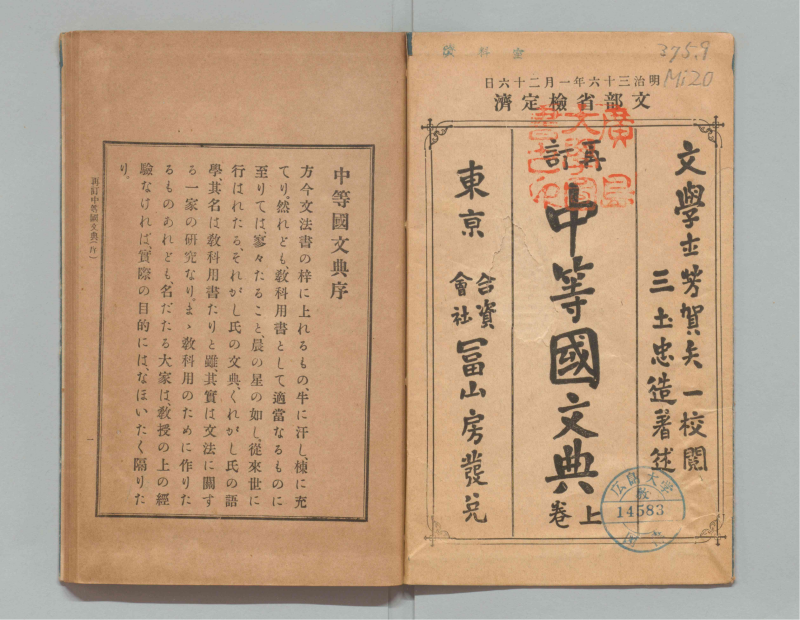 375.9
Mi20
教科室
明治三十六年一月二十六日
文部省檢定濟
文學士芳賀矢一校閲
三土忠造著述
再訂
中等國文典
上卷
東京
合資會社
冨山房發兌
広島大学
14583
中等國文典序
方今文法書の梓に上れるもの、牛に汗し、棟に充
てり。然れども、敎科用書として適當なるものに
至りては、寥々たること、晨の星の如し。從來世に
行はれたる、それがし氏の文典、くれがし氏の語
學、其名は敎科用書たりと雖其實は文法に關す
る一家の研究なり。まゝ敎科用のために作りた
るものあれども、名だたる大家は、敎授の上の經
驗なければ、實際の目的には、なほいたく隔りた
り。
再訂中等國文典(序)
一